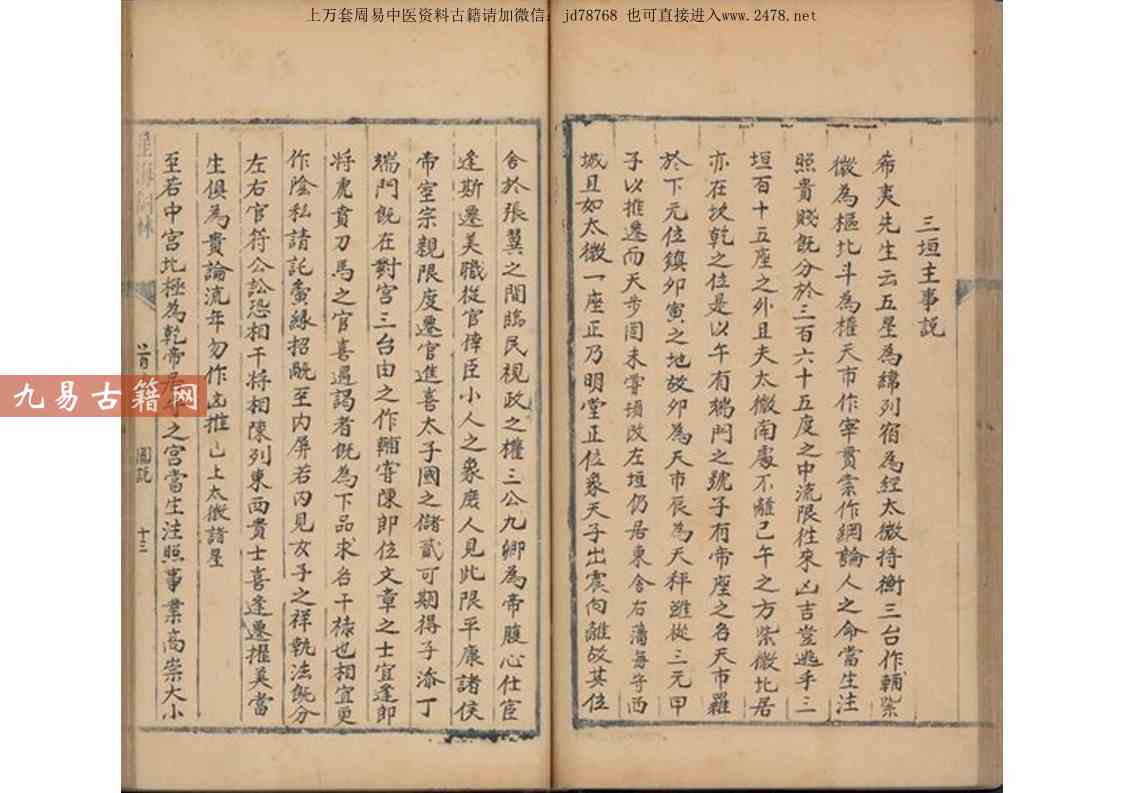 上万套周易中医资料古籍请加微信: jd78768 也可直接进入www.2478.net
三垣主事説
希夷先生云五星為緯列宿為經太微持衡三台作輔紫
微為樞北斗為權天市作宰貫索作綱論人之命當生注
照貴賤既分於三百六十五度之中流限往來凶吉豈逃乎三
垣百十五座之外且夫太微南處不離已午之方紫微北居
亦在坎乾之位是以午有端門之號子有帝座之名天市羅
於下元位鎮卯寅之地故卯為天市辰為天秤雖從三元甲
子以推遷而天步固未嘗頃改左垣仍居東舍右藩每守西
城且如太微一座正乃明堂正位象天子出震向離故其位
舍於張翼之間臨民視政之權三公九卿為帝腹心仕宦
逢斯遷美職從官倖臣小人之象庶人見此限平康諸侯
帝室宗親限度遷官進喜太子國之儲貳可期得子添丁
端門既在對宮三台由之作輔常陳郎位文章之士宜逢郎
將虎賁刀馬之官喜遇謁者既為下品求名干祿也相宜更
作陰私請託夤緣招既至内屏若内見女子之祥執法既分
左右官符公訟恐相干將相陳列東西貴士喜逢遷擢美當
生俱為貴論流年勿作凶推已上太微諸星
至若中宮北極為乾帝居之宮當生注照事業高崇大小
星海詞林
圖説
十三
九易古籍网